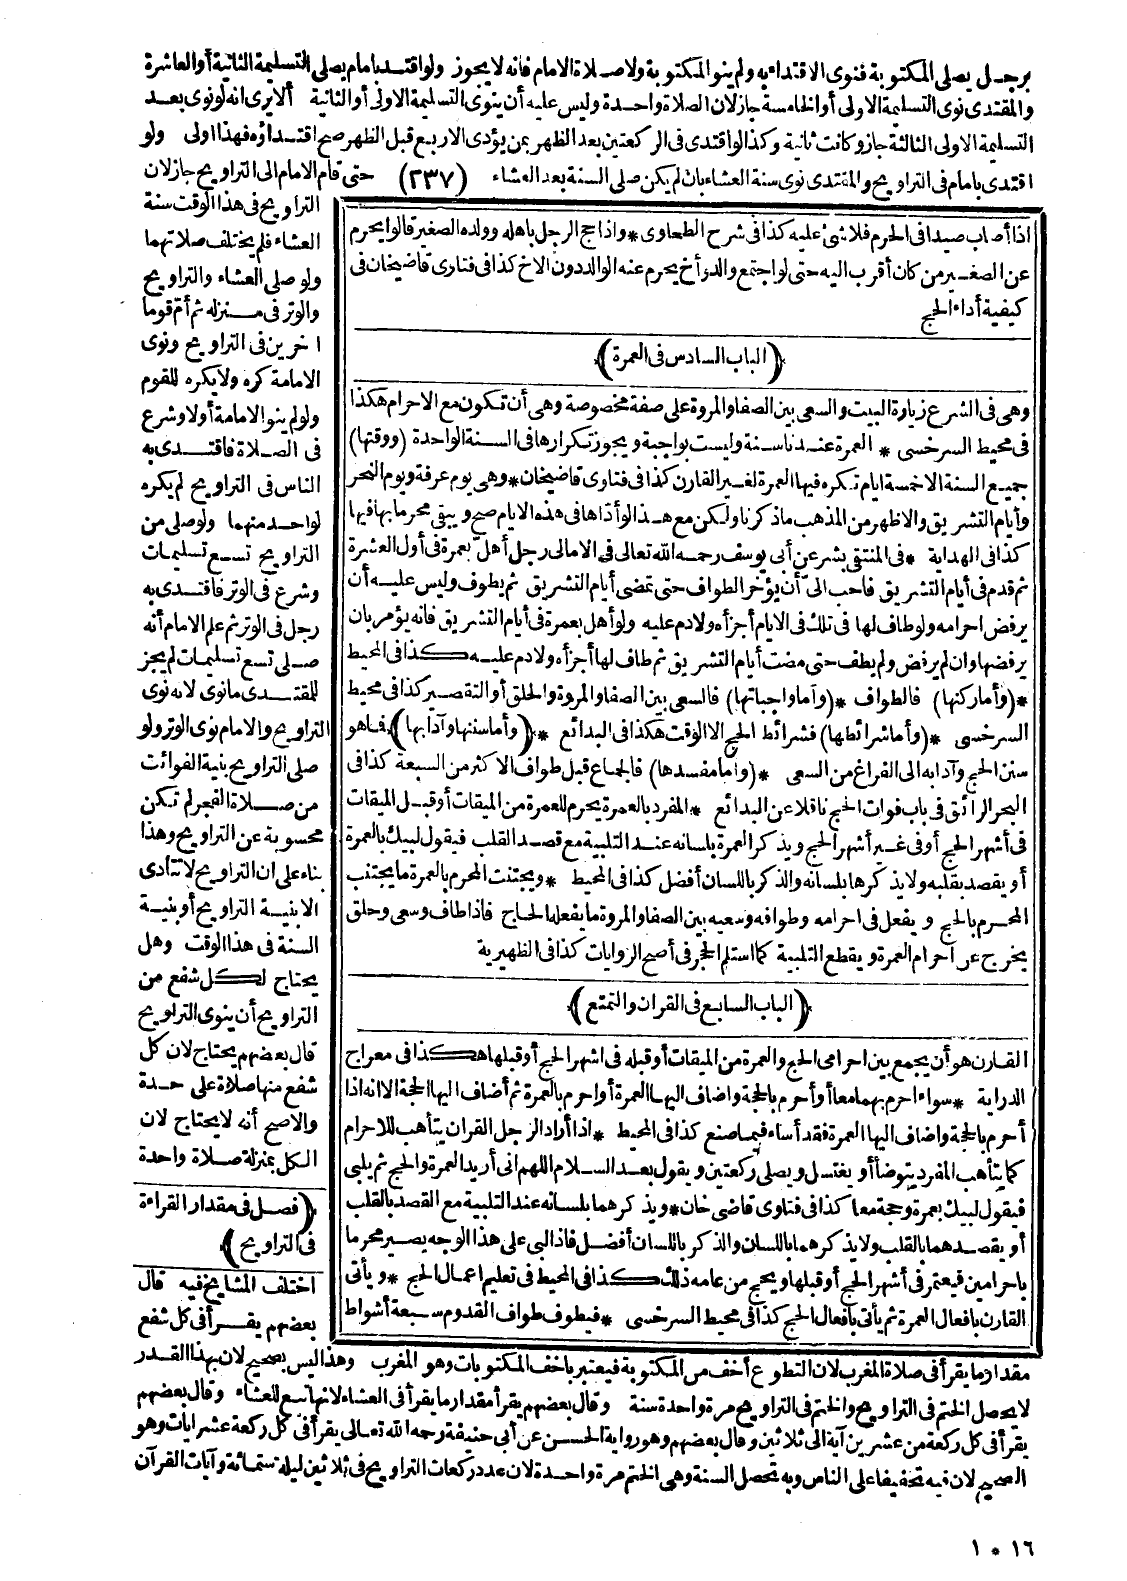 برجل يصلى المكتوبة فنوى الاقتداء به ولم ينو المكتوبة ولا صلاة الامام فانه لا يجوز ولو اقتدى بامام يصلى التسليمة الثانية أو العاشرة
والمقتدى نوى التسليمة الاولى أو الخامسة جاز لان الصلاة واحدة وليس عليه أن ينوى التسليمة الاولى أو الثانية ألا يرى انه لو نوى بعد
التسليمة الاولى الثالثة جاز وكانت ثانية وكذا لو اقتدى فى الركعتين بعد الظهر بمن يؤدى الاربع قبل الظهر صح اقتداؤه فهذا اولى ولو
اقتدى بامام فى التراويح والمقتدى نوى سنة العشاء بان لم يكن صلى السنة بعد العشاء (٢٣٧) حتى قام الامام الى التراويح جاز لان
التراويح فى هذا الوقت سنة
العشاء فلم يختلف صلاتهما
ولو صلى العشاء والتراويح
والوتر فى منزله ثم أم قوما
اخرين فى التراويح ونوى
الامامة كره ولا يكره للقوم
ولو لم ينو الامامة أولا وشرع
فى الصلاة فاقتدى به
الناس فى التراويح لم يكره
لواحد منهما ولو صلى من
التراويح تسع تسليمات
وشرع فى الوتر فاقتدى به
رجل فى الوتر ثم علم الامام أنه
صلى تسع تسليمات لم يجز
للمقتدى ما نوى لانه نوى
التراويح والامام نوى الوتر ولو
صلى التراويح بنية الفوائت
من صلاة الفجر لم تكن
محسوبة عن التراويح وهذا
بناء على ان التراويح لا تتأدى
الا بنية التراويح أو بنية
السنة فى هذا الوقت وهل
يحتاج لكل شفع من
التراويح أن ينوى التراويح
قال بعضهم يحتاج لان كل
شفع منها صلاة على حدة
والاصح أنه لا يحتاج لان
الكل بمنزلة صلاة واحدة
(فصل فى مقدار القراءة
فى التراويح)
اختلف المشايخ فيه قال
بعضهم يقرأ فى كل شفع
اذا أصاب صيدا فى الحرم فلا شئ عليه كذا فى شرح الطحاوى * واذا حج الرجل باهله وولده الصغير قالوا يحرم
عن الصغير من كان أقرب اليه حتى لو اجتمع والد وأخ يحرم عنه الوالد دون الاخ كذا فى فتاوى قاضيخان فى
كيفية أداء الحج
(الباب السادس فى العمرة)
وهى فى الشرع زيارة البيت والسعى بين الصفا والمروة على صفة مخصوصة وهى أن تكون مع الاحرام هكذا
فى محيط السرخسى * العمرة عندنا سنة وليست بواجبة ويجوز تكرارها فى السنة الواحدة (ووقتها)
جميع السنة الا خمسة ايام تكره فيها العمرة لغير القارن كذا فى فتاوى قاضيخان * وهى يوم عرفة ويوم النحر
وأيام التشريق والاظهر من المذهب ما ذكرنا ولكن مع هذا لو أداها فى هذه الايام صح ويبقى محرما بها فيها
كذا فى الهداية * فى المنتقى بشر عن أبى يوسف رحمه الله تعالى فى الامالى رجل أهل بعمرة فى أول العشرة
ثم قدم فى أيام التشريق فاحب الىّ أن يؤخر الطواف حتى تمضى أيام التشريق ثم يطوف وليس عليه أن
يرفض احرامه ولو طاف لها فى تلك فى الايام أجزأه ولا دم عليه ولو أهل بعمرة فى أيام التشريق فانه يؤمر بان
يرفضها وان لم يرفض ولم يطف حتى مضت أيام التشريق ثم طاف لها أجزأه ولا دم عليه كذا فى المحيط
* (وأما ركنها) فالطواف * (وأما واجباتها) فالسعى بين الصفا والمروة والحلق أو التقصير كذا فى محيط
السرخسى * (وأما شرائطها) فشرائط الحج الا الوقت هكذا فى البدائع * (وأما سننها وآدابها) فما هو
سنن الحج وآدابه الى الفراغ من السعى * (وأما مفسدها) فالجماع قبل طواف الاكثر من السبعة كذا فى
البحر الرائق فى باب فوات الحج ناقلا عن البدائع * المفرد بالعمرة يحرم للعمرة من الميقات أو قبل الميقات
فى أشهر الحج أو فى غير أشهر الحج ويذكر العمرة بلسانه عند التلبية مع قصد القلب فيقول لبيك بالعمرة
أو يقصد بقلبه ولا يذكرها بلسانه والذكر باللسان أفضل كذا فى المحيط * ويجتنب المحرم بالعمرة ما يجتنب
المحرم بالحج ويفعل فى احرامه وطوافه وسعيه بين الصفا والمروة ما يفعله الحاج فاذا طاف وسعى وحلق
يخرج عن احرام العمرة ويقطع التلبية كما استلم الحجر فى أصح الروايات كذا فى الظهيرية
(الباب السابع فى القران والتمتع)
القارن هو أن يجمع بين احرامى الحج والعمرة من الميقات أو قبله فى اشهر الحج أو قبلها هكذا فى معراج
الدراية * سواء احرم بهما معا أو أحرم بالحجة واضاف اليها العمرة أو احرم بالعمرة ثم أضاف اليها الحجة الا انه اذا
أحرم بالحجة واضاف اليها العمرة فقد أساء فيما صنع كذا فى المحيط * اذا أراد الرجل القران يتأهب للاحرام
كما يتأهب المفرد يتوضأ أو يغتسل ويصلى ركعتين ويقول بعد السلام اللهم انى أريد العمرة والحج ثم يلبى
فيقول لبيك بعمرة وحجة معا كذا فى فتاوى قاضى خان * ويذكرهما بلسانه عند التلبية مع القصد بالقلب
أو يقصدهما بالقلب ولا يذكرهما باللسان والذكر باللسان أفضل فاذا لبى على هذا الوجه يصير محرما
باحرامين فيعتمر فى أشهر الحج أو قبلها ويحج من عامه ذلك كذا فى المحيط فى تعليم اعمال الحج * ويأتى
القارن بافعال العمرة ثم يأتى بافعال الحج كذا فى محيط السرخسى * فيطوف طواف القدوم سبعة أشواط
مقدار ما يقرأ فى صلاة المغرب لان التطوع أخف من المكتوبة فيعتبر باخف المكتوبات وهو المغرب وهذا ليس بصحيح لان بهذا القدر
لا يحصل الختم فى التراويح والختم فى التراويح مرة واحدة سنة وقال بعضهم يقرأ مقدار ما يقرأ فى العشاء لانها تبع للعشاء وقال بعضهم
يقرأ فى كل ركعة من عشرين آية الى ثلاثين وقال بعضهم وهو رواية الحسن عن أبى حنيفة رحمه الله تعالى يقرأ فى كل ركعة عشر ايات وهو
الصحيح لان فيه تخفيفا على الناس وبه تحصل السنة وهى الختم مرة واحدة لان عدد ركعات التراويح فى ثلاثين ليلة ستمائة وآيات القرآن
١٠١٦